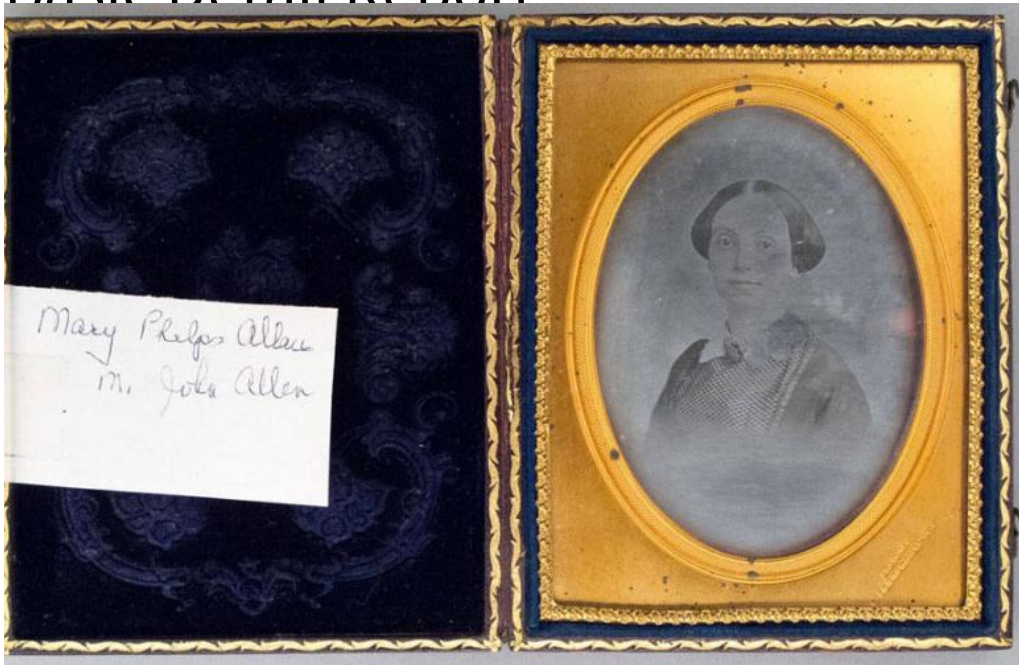 Mary Phelps Allen
m. John Allen